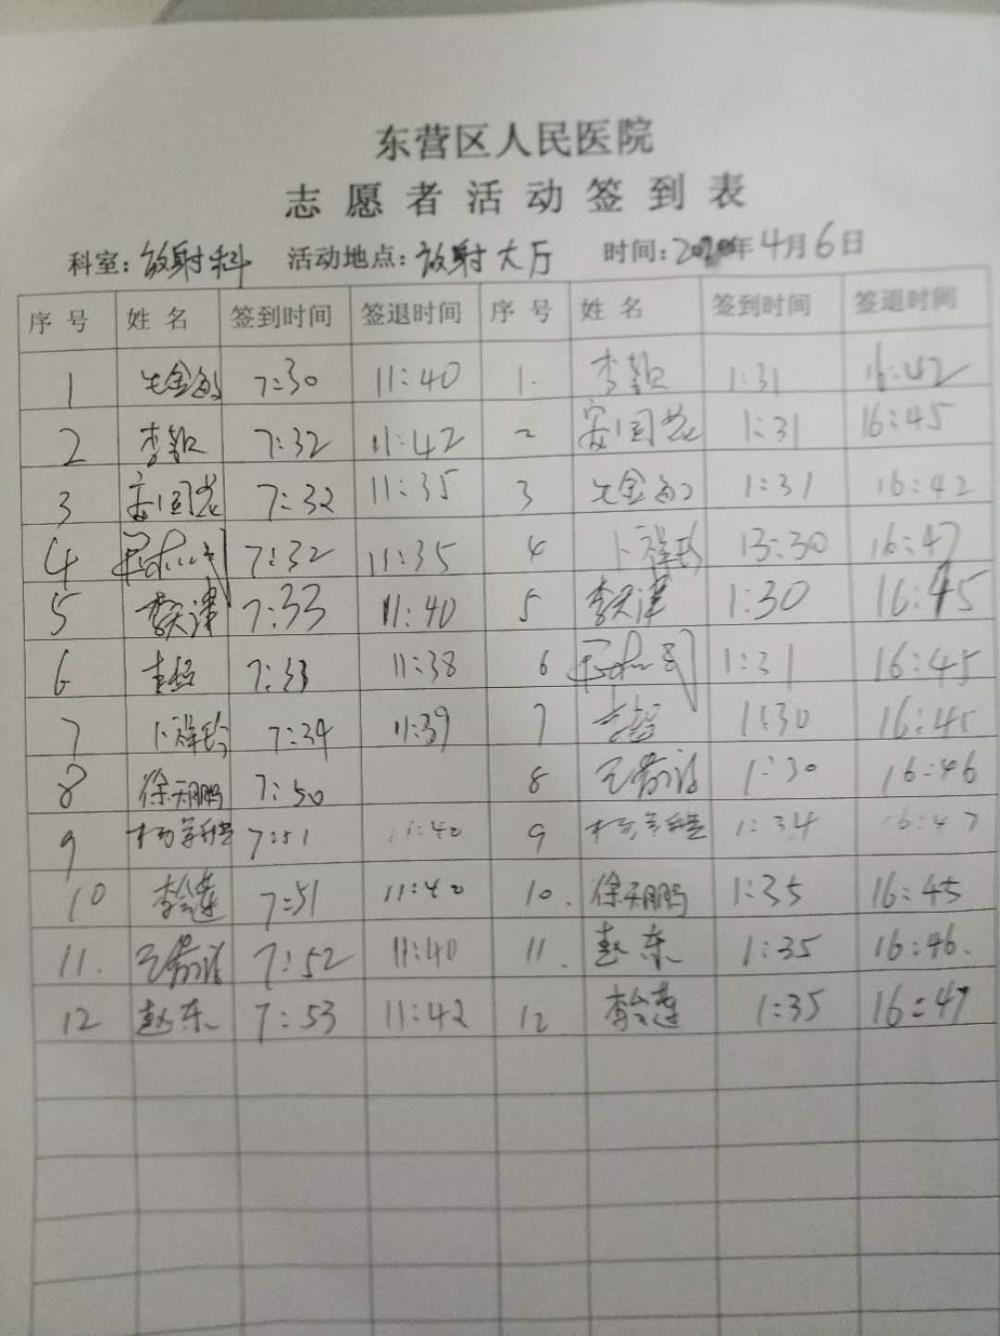 东营区人民医院
志愿者活动签到表
科室:放射科 活动地点:放射大厅 时间:2020年4月6日
序号 姓名 签到时间 签退时间 序号 姓名 签到时间 签退时间
1 7:30 11:40 1. 李颖 1:31 16:42
2 李颖 7:32 11:42 2 1:31 16:45
3 7:32 11:35 3 1:31 16:42
4 7:32 11:35 4 13:30 16:47
5 李天津 7:33 11:40 5 李天津 1:30 16:45
6 7:33 11:38 6 1:31 16:45
7 7:34 11:39 7 1:30 16:45
8 徐天鹏 7:50 8 1:30 16:46
9 7:51 1:40 9 1:34 16:47
10 李会莲 7:51 11:40 10. 徐天鹏 1:35 16:45
11. 7:52 11:40 11. 赵东 1:35 16:46.
12 赵东 7:53 11:42 12 李会莲 1:35 16:47